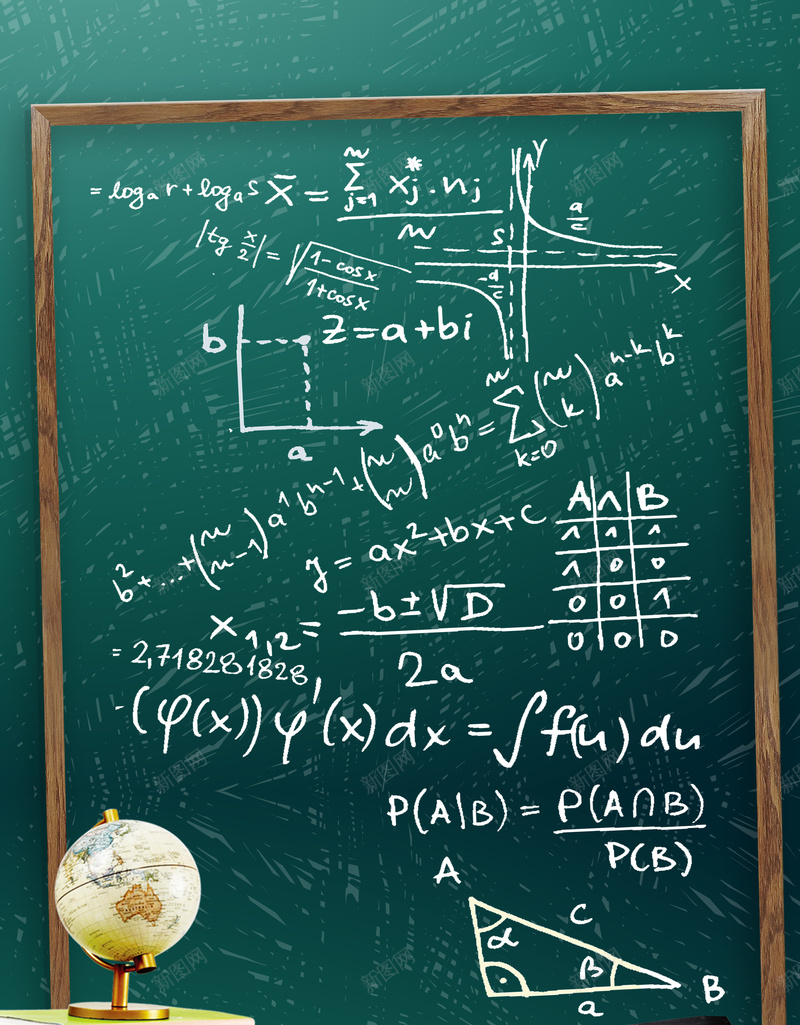 = logₐ r + logₐ s
X̄ = ∑ⱼ₌₁ⁿ xⱼ* · nⱼ / n
y
a/c
s
-a/c
x
|tg x/2| = √(1 - cos x / 1 + cos x)
b
z = a + bi
a
b² + ... + (n n-1) a¹ bⁿ⁻¹ + (n n) a⁰ bⁿ = ∑ₖ₌₀ⁿ (n k) aⁿ⁻ᵏ bᵏ
y = ax² + bx + c
A ∧ B
1 1 1
1 0 0
0 0 1
0 0 0
x₁,₂ = -b ± √D / 2a
= 2,718281828,
- (φ(x)) φ'(x) dx = ∫ f(u) du
P(A|B) = P(A ∩ B) / P(B)
A
c
α
β
B
a